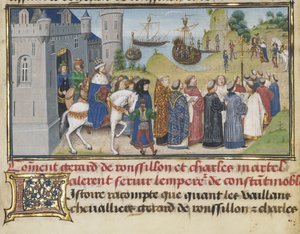 Coment gerard de roussillon et charles martel
alerent servir lempere de constantinoble
Istoire racompte que quant les vaillans
chevalliers gerard de roussillon z charles